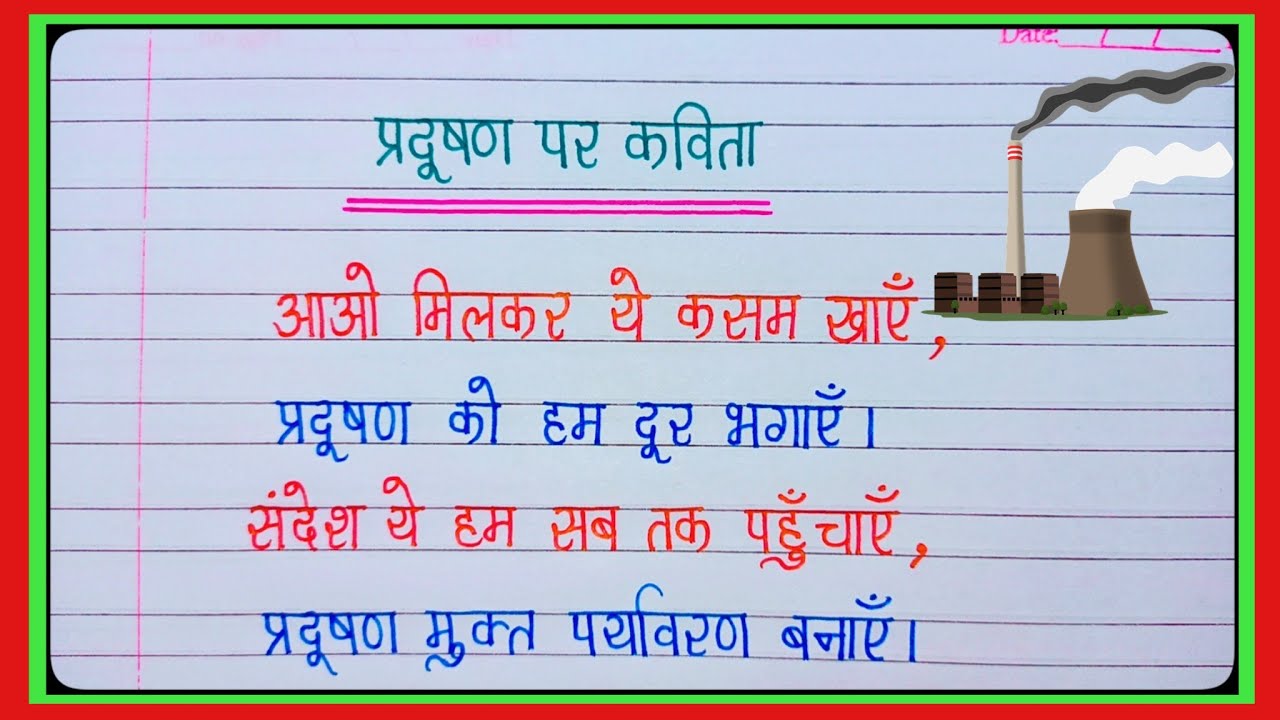 Date: / /
प्रदूषण पर कविता
आओ मिलकर ये कसम खाएँ,
प्रदूषण को हम दूर भगाएँ।
संदेश ये हम सब तक पहुँचाएँ,
प्रदूषण मुक्त पर्यावरण बनाएँ।